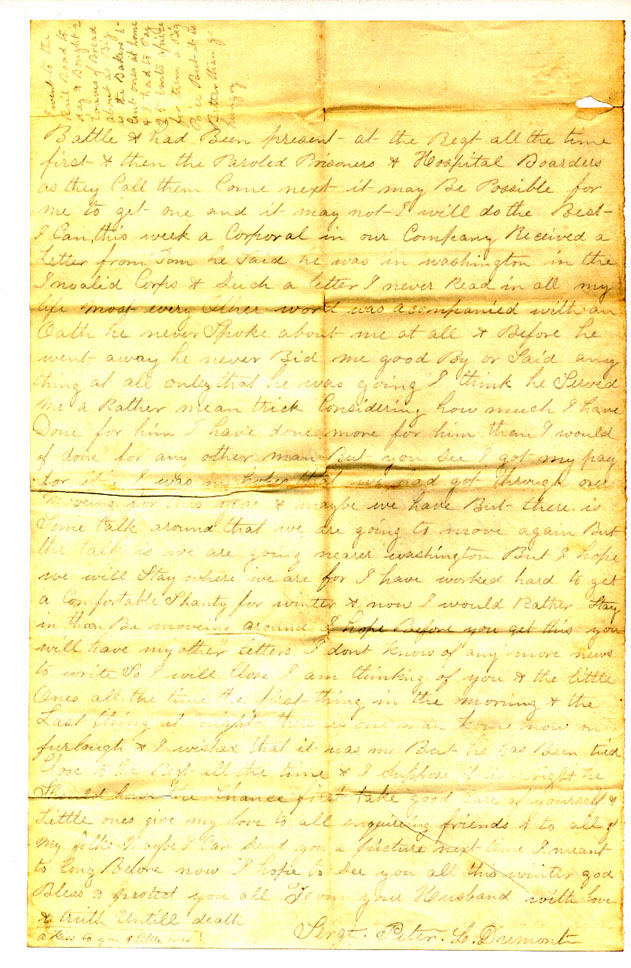 I went to the
Rail Road to
day & Bought 2
Loaves of Bread
about as Big
as the Bakers 6
Cent ones at home
& had to Pay
25 cents apiece
for them a Big
Price But it is
Better than go
hungry
Battle & had Been present at the Regt all the time
first & then the Paroled Prisoners & Hospital Boarders
as they Call them Come next it may Be Possible for
me to get one and it may not I will do the Best
I Can, this week a Corporal in our Company Received a
Letter from Tom he Said he was in washington in the
Invalid Corps & Such a letter I never Read in all my
life most every Other word was acompanied with an
Oath he never Spoke about me at all & Before he
went away he never Bid me good By or Said any
thing at all only that he was going I think he Served
me a Rather mean trick Considering how much I have
Done for him I have done more for him than I would
of done for any other man But you See I got my pay
for it, I was in hopes that we had got through our
moving for this year & maybe we have But there is
Some talk around that we are going to move again But
the talk is we are going nearer washington But I hope
we will Stay where we are for I have worked hard to get
a Comfortable Shanty for winter & now I would Rather Stay
in than Be moveing around I hope Before you get this you
will have my other letters I dont know of any more news
to write So I will Close I am thinking of you & the little
Ones all the time the first thing in the morning & the
Last thing at night there is one man home now on
furlough & I wished that it was me But he has Been tied
Close to the Regt all the time & I Suppose it is right he
Should have the Chance first take good Care of yourself &
Little ones give my love to all enquireing friends & to all of
my folks Maybe I Can Send you a picture next time I meant
to long Before now I hope to See you all this winter god
Bless & protect you all From your Husband with love
& truth Untill death
Sergt. Peter. L. Dumont
a kiss to you & little ones